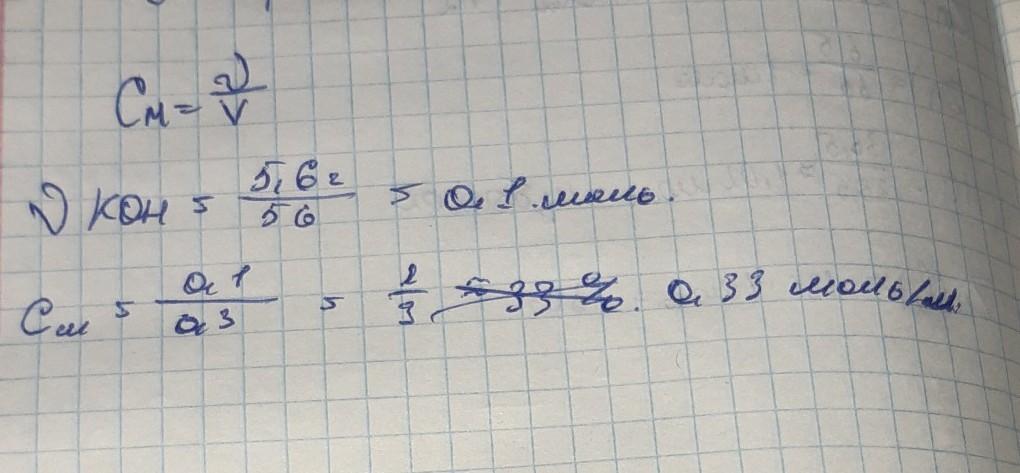 См = ν/V
ν KOH = 5,6г/56 = 0,1 моль.
См = 0,1/0,3 = 1/3 = 33 %. 0,33 моль/л.